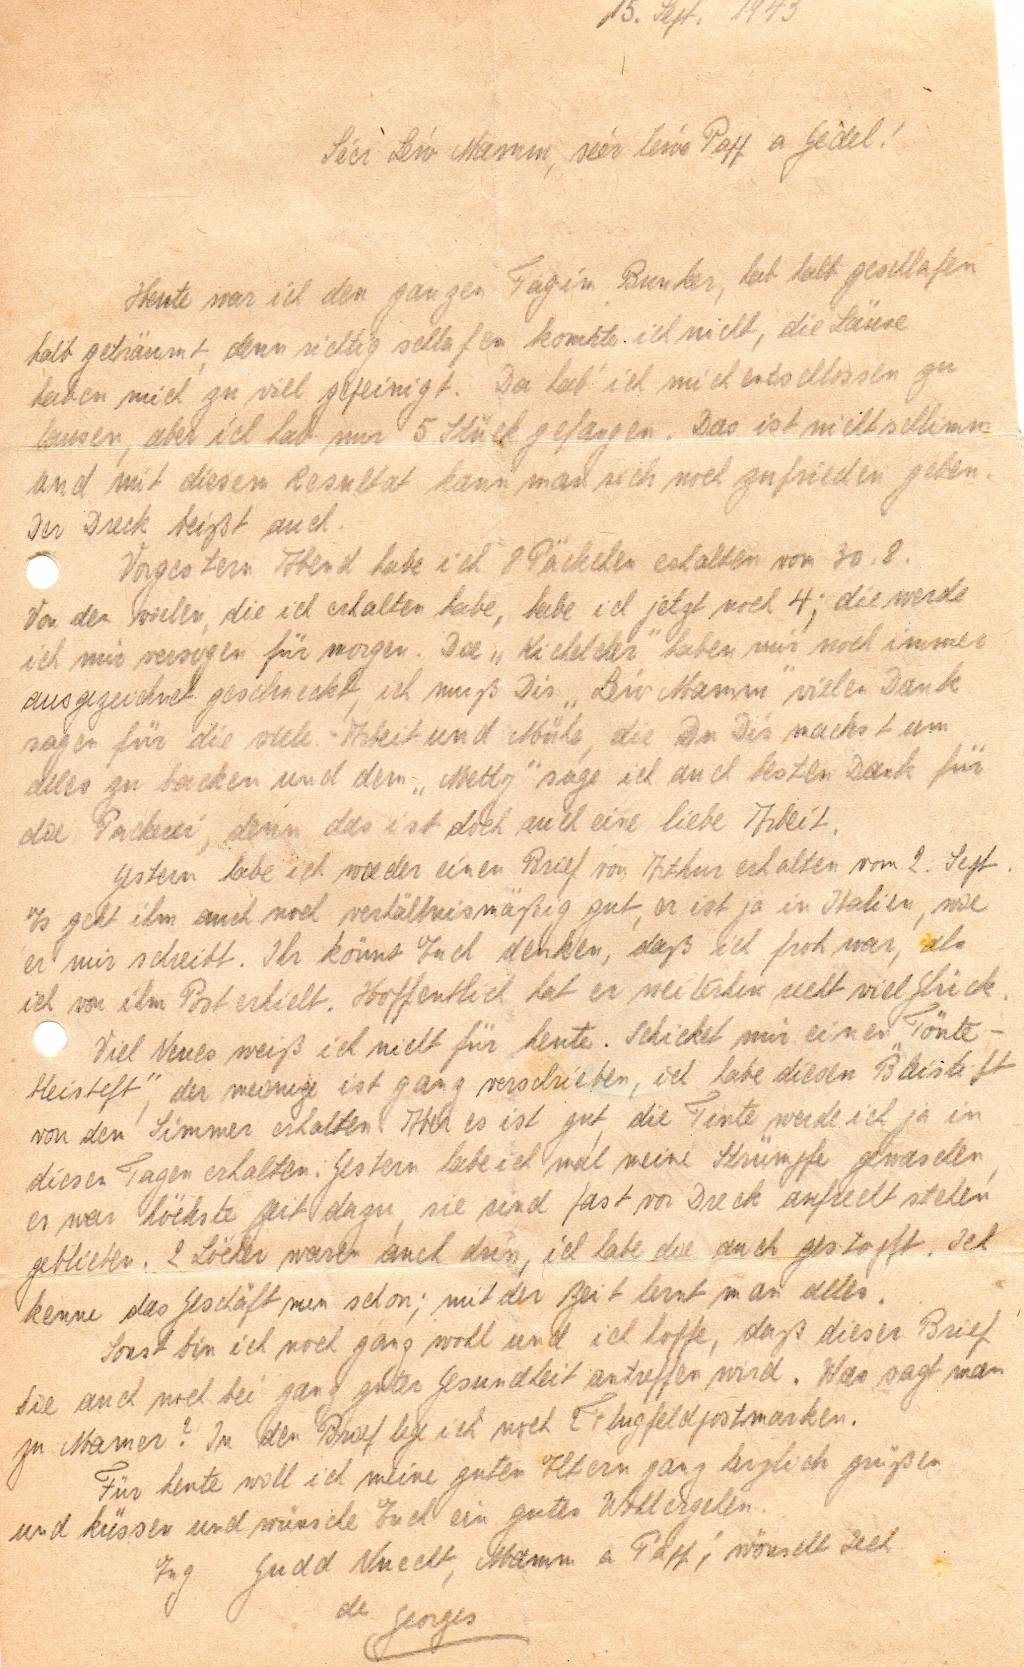 15. Sept. 1943
Séér Léiv Mamm, séér léive Papp a Gédel!
Heute war ich den ganzen Tag im Bunker, hab halb geschlafen
halb geträumt, denn richtig schlafen konnte ich nicht, die Läuse
haben mich zu viel gepeinigt. Da hab' ich mich entschlossen zu
lausen, aber ich hab nur 5 Stück gefangen. Das ist nicht schlimm
und mit diesem Resultat kann man sich noch zufrieden geben.
Der Dreck beißt auch.
Vorgestern Abend habe ich 8 Päckchen erhalten vom 30.8.
Von den vielen, die ich erhalten habe, habe ich jetzt noch 4; die werde
ich mir versorgen für morgen. Die „ “ haben mir noch immer
ausgezeichnet geschmeckt, ich muß Dir „Léiv Mamm“ vielen Dank
sagen für die viele Arbeit und Mühe, die Du Dir machst um
alles zu backen und dem „Metty“ sage ich auch besten Dank für
die Packerei, denn das ist doch auch eine liebe Arbeit.
Gestern habe ich wieder einen Brief von Arthur erhalten vom 2. Sept.
Es geht ihm auch noch verhältnismäßig gut, er ist ja in Italien, wie
er mir schreibt. Ihr könnt Euch denken, daß ich froh war, als
ich von ihm Post erhielt. Hooffentlich hat er weiterhin recht viel Glück.
Viel Neues weiß ich nicht für heute. Schicket mir einen „Tönte-
bleisteft“, der meinige ist ganz verschrieben, ich habe diesen Bleistift
von den Simmer erhalten. Aber es ist gut, die Tinte werde ich ja in
diesen Tagen erhalten. Gestern habe ich mal meine Strümpfe gewaschen,
es war höchste Zeit dazu, sie sind fast vor Dreck aufrecht stehen
geblieben. 2 Löcher waren auch drin, ich habe die auch gestopft. Ich
kenne das Geschäft nun schon; mit der Zeit lernt man alles.
Sonst bin ich noch ganz wohl und ich hoffe, daß dieser Brief
Sie auch noch bei ganz guter Gesundheit antreffen wird. Was sagt man
zu Mamer? In den Brief lege ich noch 2 Flugfeldpostmarken.
Für heute will ich meine guten Eltern ganz herzlich grüßen
und küssen und wünsche Euch ein gutes Wohlergehen.
Eng Gudd Nuecht, Mamm a Papp, wönscht Iech
de Georges